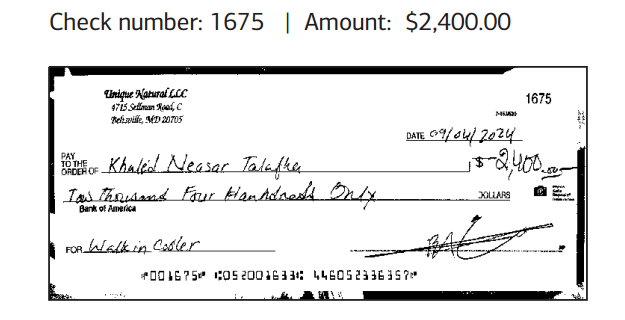 Check number: 1675 | Amount: $2,400.00
Unique Natural LLC
4715 Sellman Road, C
Beltsville, MD 20705
1675
DATE 09/04/2024
PAY TO THE ORDER OF Khaled Neasar Talafha $ 2,400.00
Tow Thousand Four Handreds Only DOLLARS
Bank of America
FOR Walk in Cooler
⑈001675⑈ ⑆052001633⑆ 446052336357⑈